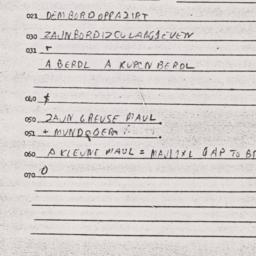 021 DEM BORD OPRAZIRT
030 ZAJN BORD IZ CU LANG GEVEN
031 +
A BERDL A KURCN BERDL
040 $
050 ZAJN GREUSE MAUL.
051 + MUND
060 A KLEUNE MAUL = MAJLXL GAP TO
070 0